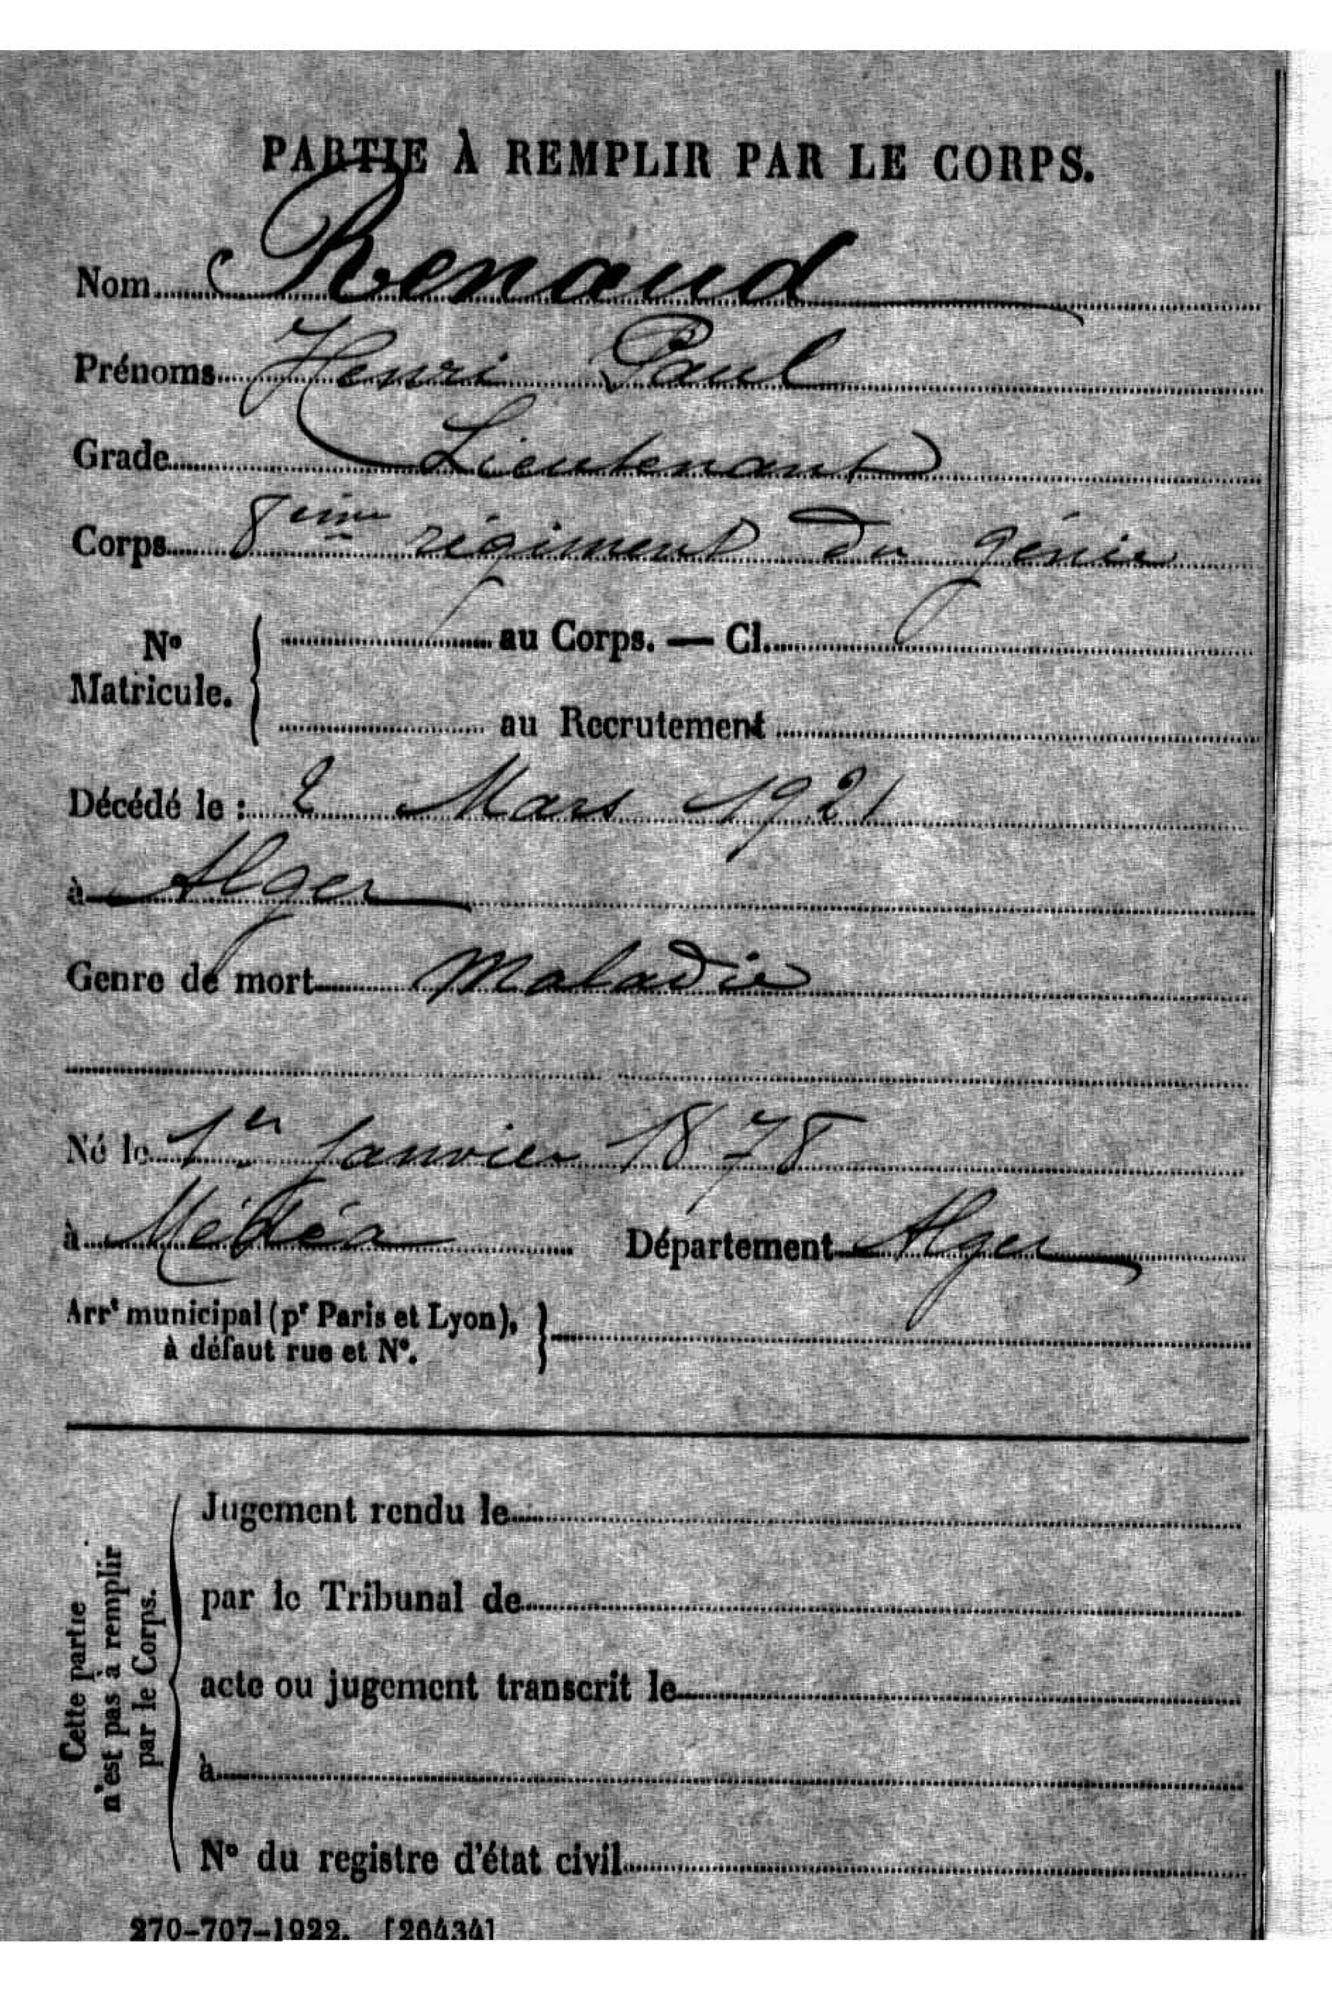 PARTIE À REMPLIR PAR LE CORPS.
Nom Renaud
Prénoms Henri Paul
Grade Lieutenant
Corps 8ème régiment du génie
N° Matricule. { au Corps. — Cl.
au Recrutement
Décédé le : 2 Mars 1921
à Alger
Genre de mort Maladie
Né le 1er Janvier 1878
à Médéa Département Alger
Arrt municipal (pr Paris et Lyon), }
à défaut rue et N°.
Cette partie
n'est pas à remplir
par le Corps.
Jugement rendu le
par le Tribunal de
acte ou jugement transcrit le
à
N° du registre d'état civil
270-707-1922. [26434]